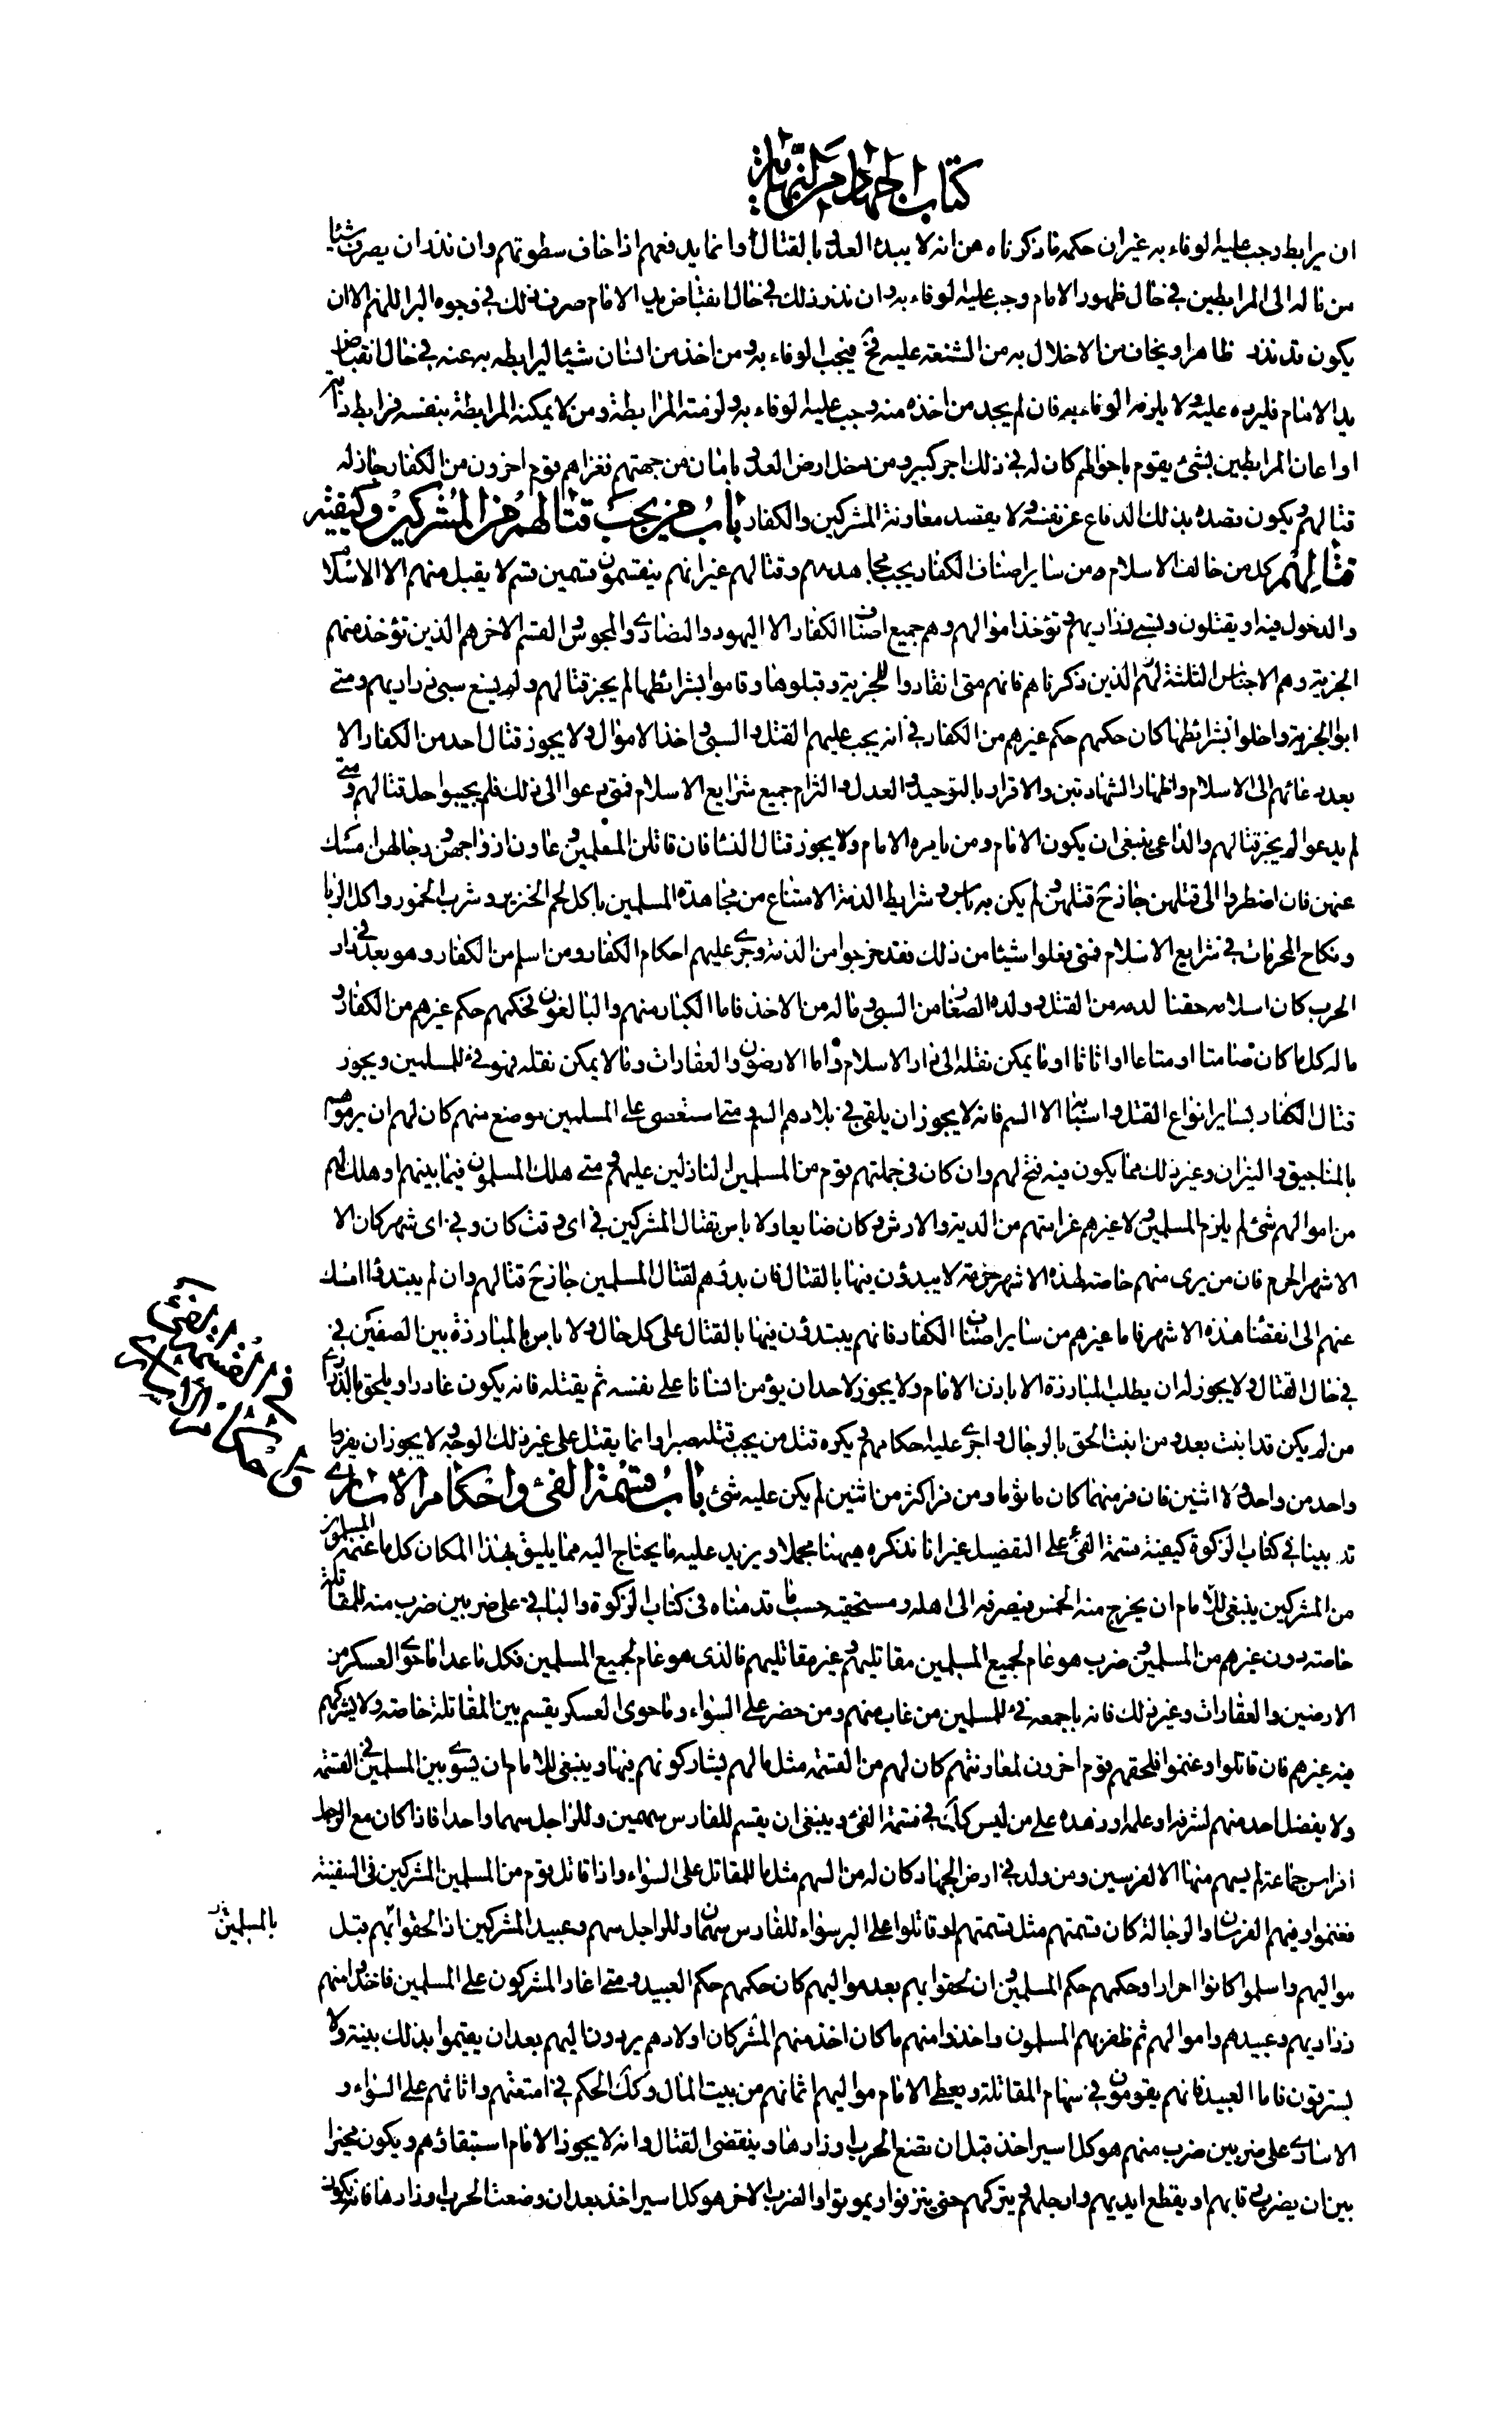 كتاب الجهاد من النهاية
ان يرابط وجب عليه الوفاء به غير ان حكمه ما ذكرناه من انه لا يبدء العدو بالقتال وانما يدفعهم اذا خاف سطوتهم وان نذر ان يصرف شيئا
من ماله الى المرابطين في حال ظهور الامام وجب عليه الوفاء به وان نذر ذلك في حال انقباض يد الامام صرف ذلك في وجوه البر اللهم الا ان
يكون قد نذر ظاهرا ويخاف من الاخلال به من الشنعة عليه فح فيجب الوفاء به ومن اخذ من انسان شيئا ليرابط به عنه في حال انقباض
يد الامام فليرده عليه ولا يلزمه الوفاء به فان لم يجد من اخذه منه وجب عليه الوفاء به ولزمته المرابطة ومن لا يمكنه المرابطة بنفسه فرابط دابة
او اعان المرابطين بشئ يقوم باحوالهم كان له في ذلك اجر كبير ومن دخل ارض العدو بامان من جهتهم فغزاهم قوم اخرون من الكفار جاز له
قتالهم ويكون قصده بذلك الدفاع عن نفسه ولا يقصد معاونة المشركين والكفار باب من يجب قتالهم من المشركين وكيفية
قتالهم كل من خالف الاسلام من ساير اصناف الكفار يجب مجاهدتهم وقتالهم غير انهم ينقسمون قسمين قسم لا يقبل منهم الا الاسلام
والدخول فيه او يقتلون وتسبى ذراريهم وتؤخذ اموالهم وهم جميع اصناف الكفار الا اليهود والنصارى والمجوس والقسم الاخر هم الذين تؤخذ منهم
الجزية وهم الاجناس الثلثة الذين ذكرناهم فانهم متى انقادوا للجزية وقبلوها وقاموا بشرائطها لم يجز قتالهم ولم يسغ سبى ذراريهم ومتى
ابوا الجزية واخلوا بشرائطها كان حكمهم حكم غيرهم من الكفار في انه يجب عليهم القتل والسبى واخذ الاموال ولا يجوز قتال احد من الكفار الا
بعد دعائهم الى الاسلام واظهار الشهادتين والاقرار بالتوحيد والعدل والتزام جميع شرايع الاسلام فمتى دعوا الى ذلك فلم يجيبوا حل قتالهم ومتى
لم يدعوا لم يجز قتالهم والداعى ينبغى ان يكون الامام ومن يامره الامام ولا يجوز قتال النساء فان قاتلن المسلمين وعاون ازواجهن ورجالهن امسك
عنهن فان اضطروا الى قتلهن جاز ح قتلهن ولم يكن به باس وشرايط الذمة الامتناع من مجاهدة المسلمين باكل لحم الخنزير وشرب الخمور واكل الربا
ونكاح المحرمات في شرايع الاسلام فمتى فعلوا شيئا من ذلك فقد خرجوا من الذمة وجرى عليهم احكام الكفار ومن اسلم من الكفار وهو بعد في دار
الحرب كان اسلامه حقنا لدمه من القتل وولده الصغار من السبى وماله من الاخذ فاما الكبار منهم والبالغون فحكمهم حكم غيرهم من الكفار و
ماله كلما كان صامتا او متاعا او اثاثا او ما يمكن نقله الى دار الاسلام واما الارضون والعقارات وما لا يمكن نقله فهو فيء للمسلمين ويجوز
قتال الكفار بساير انواع القتل واسبابه الا السم فانه لا يجوز ان يلقى في بلادهم السم ومتى استعصى على المسلمين موضع منهم كان لهم ان يرموهم
بالمناجيق والنيران وغير ذلك مما يكون فيه فتح لهم وان كان في جملتهم قوم من المسلمين النازلين عليهم ومتى هلك المسلمون فيما بينهم او هلك لهم
من اموالهم شئ لم يلزم المسلمين ولا غيرهم غرامتهم من الدية والارش وكان ضايعا ولا باس بقتال المشركين في اى وقت كان وفي اى شهر كان الا
الاشهر الحرم فان من يرى منهم خاصة لهذه الاشهر حرمة لا يبدؤن فيها بالقتال فان بدؤهم لقتال المسلمين جاز ح قتالهم وان لم يبتدؤا امسك
عنهم الى انقضاء هذه الاشهر فاما غيرهم من ساير اصناف الكفار فانهم يبتدؤن فيها بالقتال على كل حال ولا باس بالمبارزة بين الصفين في
في حال القتال ولا يجوز له ان يطلب المبارزة الا باذن الامام ولا يجوز لاحد ان يؤمن انسانا على نفسه ثم يقتله فانه يكون غادرا ويلحق بالذرارى
من لم يكن قد انبت بعد ومن انبت الحق بالرجال واجرى عليه احكامهم ويكره قتل من يجب قتله صبرا وانما يقتل على غير ذلك الوجه ولا يجوز ان يفر
واحد من واحد ولا اثنين فان فر منهما كان ماثوما ومن فر اكثر من اثنين لم يكن عليه شئ باب قسمة الفئ واحكام الاسارى
قد بينا في كتاب الزكوة كيفية قسمة الفئ على التفصيل غير انا نذكره ههنا مجملا ويزيد عليه ما يحتاج اليه مما يليق بهذا المكان كلما غنمه المسلمون
من المشركين ينبغى للامام ان يخرج منه الخمس فيصرفه الى اهله ومستحقيه حسب ما قدمناه في كتاب الزكوة والباقي على ضربين ضرب منه للمقاتلة
خاصة دون غيرهم من المسلمين وضرب هو عام لجميع المسلمين مقاتليهم وغير مقاتليهم فالذى هو عام لجميع المسلمين فكل ما عدا ما حوى العسكر من
الارضين والعقارات وغير ذلك فانه باجمعه فيء للمسلمين من غاب منهم ومن حضر على السواء وما حوى العسكر يقسم بين المقاتلة خاصة ولا يشركهم
فيه غيرهم فان قاتلوا وغنموا فلحقهم قوم اخرون لمعاونتهم كان لهم من القسمة مثل ما لهم يشاركونهم فيها وينبغى للامام ان يسوى بين المسلمين في القسمة
ولا يفضل احد منهم لشرفه او علمه او زهده على من ليس كك في قسمة الفئ وينبغى ان يقسم للفارس سهمين وللراجل سهما واحدا فاذا كان مع الرجل
افراس جماعة لم يسهم منها الا لفرسين ومن ولد في ارض الجهاد كان له من السهم مثل ما للمقاتل على السواء واذا قاتل قوم من المسلمين المشركين في السفينة
فغنموا وفيهم الفرسان والرجالة كان قسمتهم مثل قسمتهم لو قاتلوا على البر سواء للفارس سهمان وللراجل سهم وعبيد المشركين اذا لحقوا بهم قبل
بالمسلمين
مواليهم واسلموا كانوا احرارا وحكمهم حكم المسلمين وان لحقوا بهم بعد مواليهم كان حكمهم حكم العبيد ومتى اغار المشركون على المسلمين فاخذوا منهم
ذراريهم وعبيدهم واموالهم ثم ظفر بهم المسلمون واخذوا منهم ما كان اخذ منهم المشركان اولادهم يردون اليهم بعد ان يقيموا بذلك بينة ولا
يسترقون فاما العبيد فانهم يقومون في سهام المقاتلة ويعطى الامام مواليهم اثمانهم من بيت المال وكك الحكم في امتعتهم واثاثهم على السواء و
الاسارى على ضربين ضرب منهم هو كل اسير اخذ قبل ان تضع الحرب اوزارها وينقضى القتال وانه لا يجوز الامام استبقاؤهم ويكون مخيرا
بين ان يضرب رقابهم او يقطع ايديهم وارجلهم ويتركهم حتى ينزفوا ويموتوا والضرب الاخر هو كل اسير اخذ بعد ان وضعت الحرب اوزارها فانه يكون